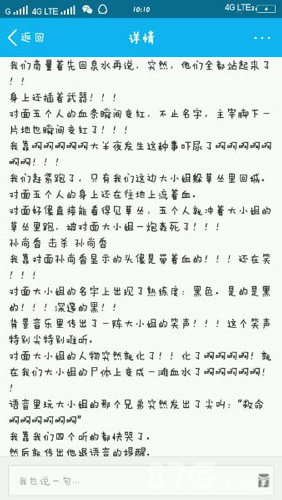 G 4G LTE 10:10 4G LTE
返回 详情 ...
我们商量着先回泉水再说，突然，他们全都站起来了
！！
身上还插着武器！！！
对面五个人的血条瞬间变红，不止名字，主宰脚下一
片地也瞬间变红了！！！
我靠啊啊啊啊啊大半夜发生这种事吓尿了啊啊啊啊啊
啊啊！！！
我们赶紧跑了，只有我们这边大小姐躲草丛里回城。
对面五个人的身上还在往地上流着血。
对面好像直接能看得见草丛，五个人就冲着大小姐的
草丛里跑，被对面大小姐一炮轰死了！！！
孙尚香 击杀 孙尚香
我靠对面孙尚香显示的头像是带着血的！！！还在笑
！！！
对面大小姐的名字上出现了熟练度：黑色。是的是黑
的！！！深邃的黑！！
背景音乐里传出了一阵大小姐的笑声！！！这个笑声
特别尖特别难听。
对面大小姐的人物突然就化了！！化了啊啊啊啊！就
在我们大小姐的尸体上变成一滩血水了啊啊啊啊啊！
！
语音里玩大小姐的那个兄弟突然发出了尖叫："救命
啊啊啊啊啊啊"
我靠我们四个听的都快哭了。
然后就传出他退语音的提醒。
我也说一句...